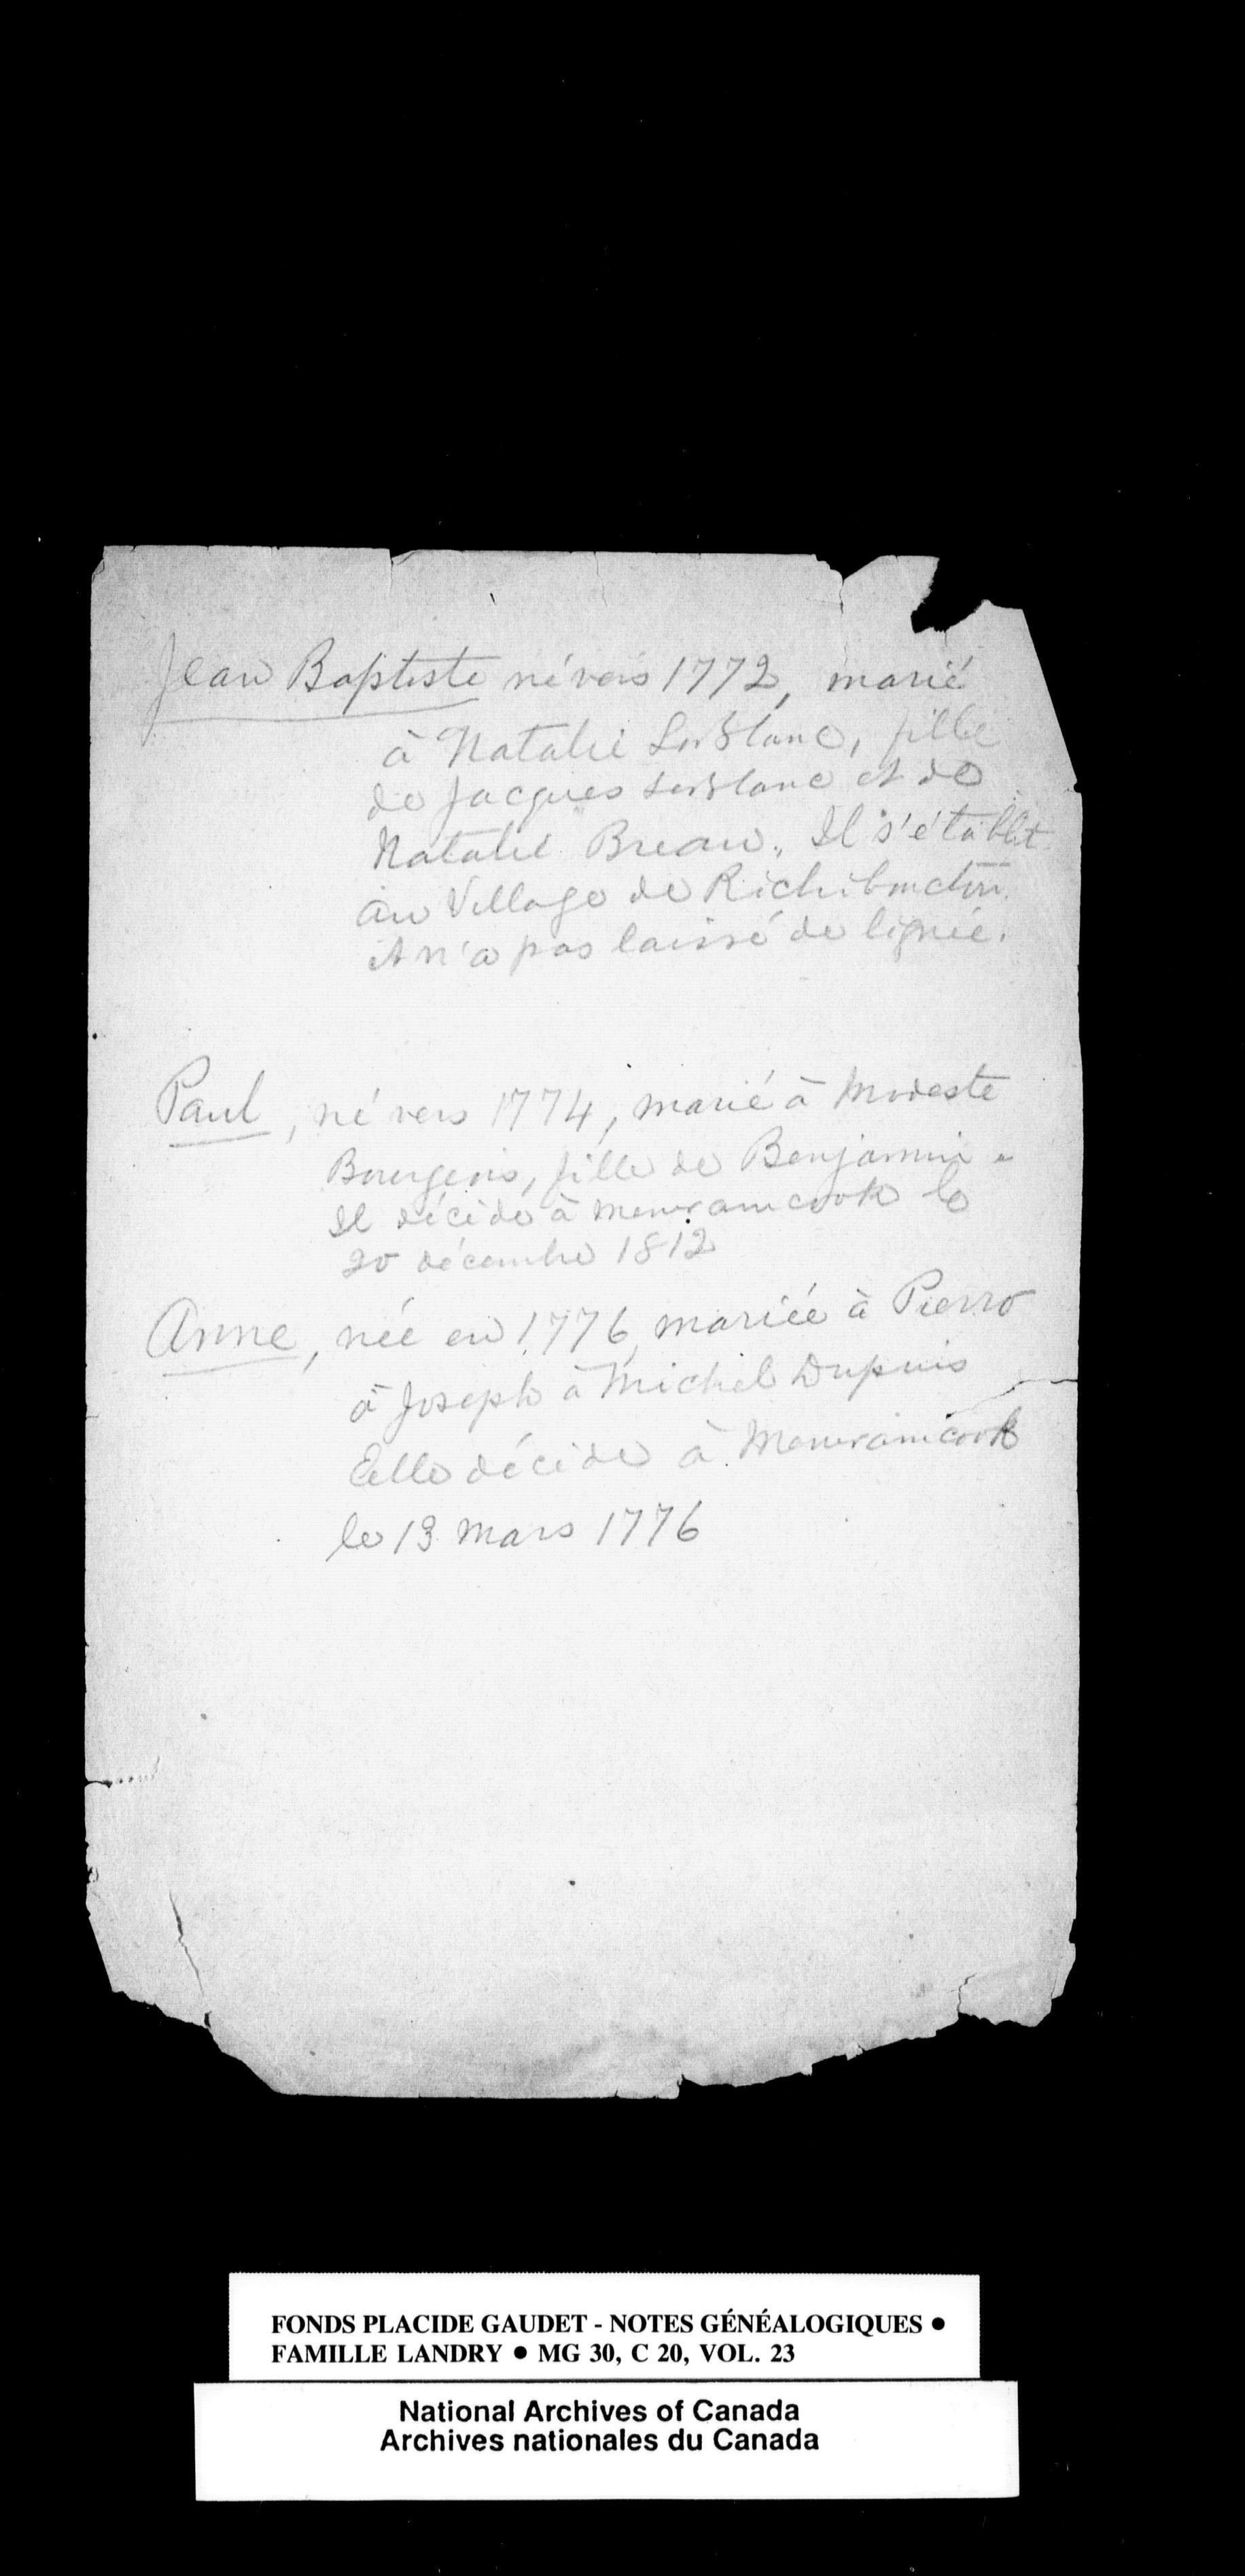 Jean Baptiste né vers 1772, marié
à Natalie LeBlanc, fille
de Jacques LeBlanc et de
Natalie Breau. Il s'établit
au Village de Richibouctou
et n'a pas laissé de lignée.
Paul, né vers 1774, marié à Modeste
Bourgeois, fille de Benjamin.
Il décède à Memramcook le
20 décembre 1812
Anne, née en 1776, mariée à Pierre
à Joseph à Michel Dupuis
Elle décède à Memramcook
le 13 mars 1776
FONDS PLACIDE GAUDET - NOTES GÉNÉALOGIQUES ●
FAMILLE LANDRY ● MG 30, C 20, VOL. 23
National Archives of Canada
Archives nationales du Canada